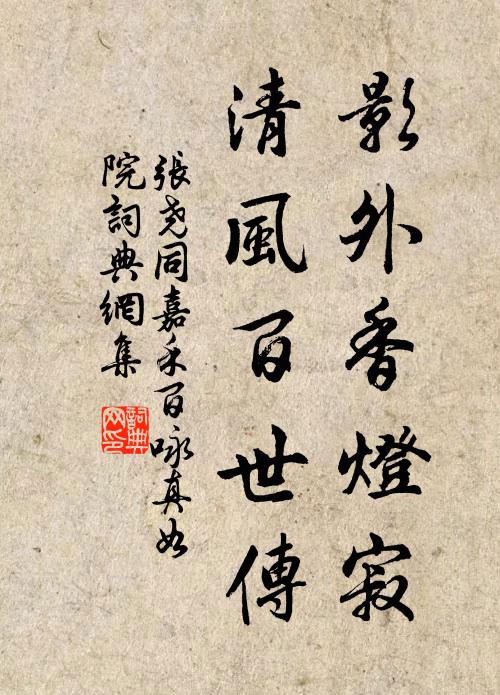 影外香燈寂
清風百世傳
張堯同嘉禾百咏真如
院詞典網集
詞典
网印